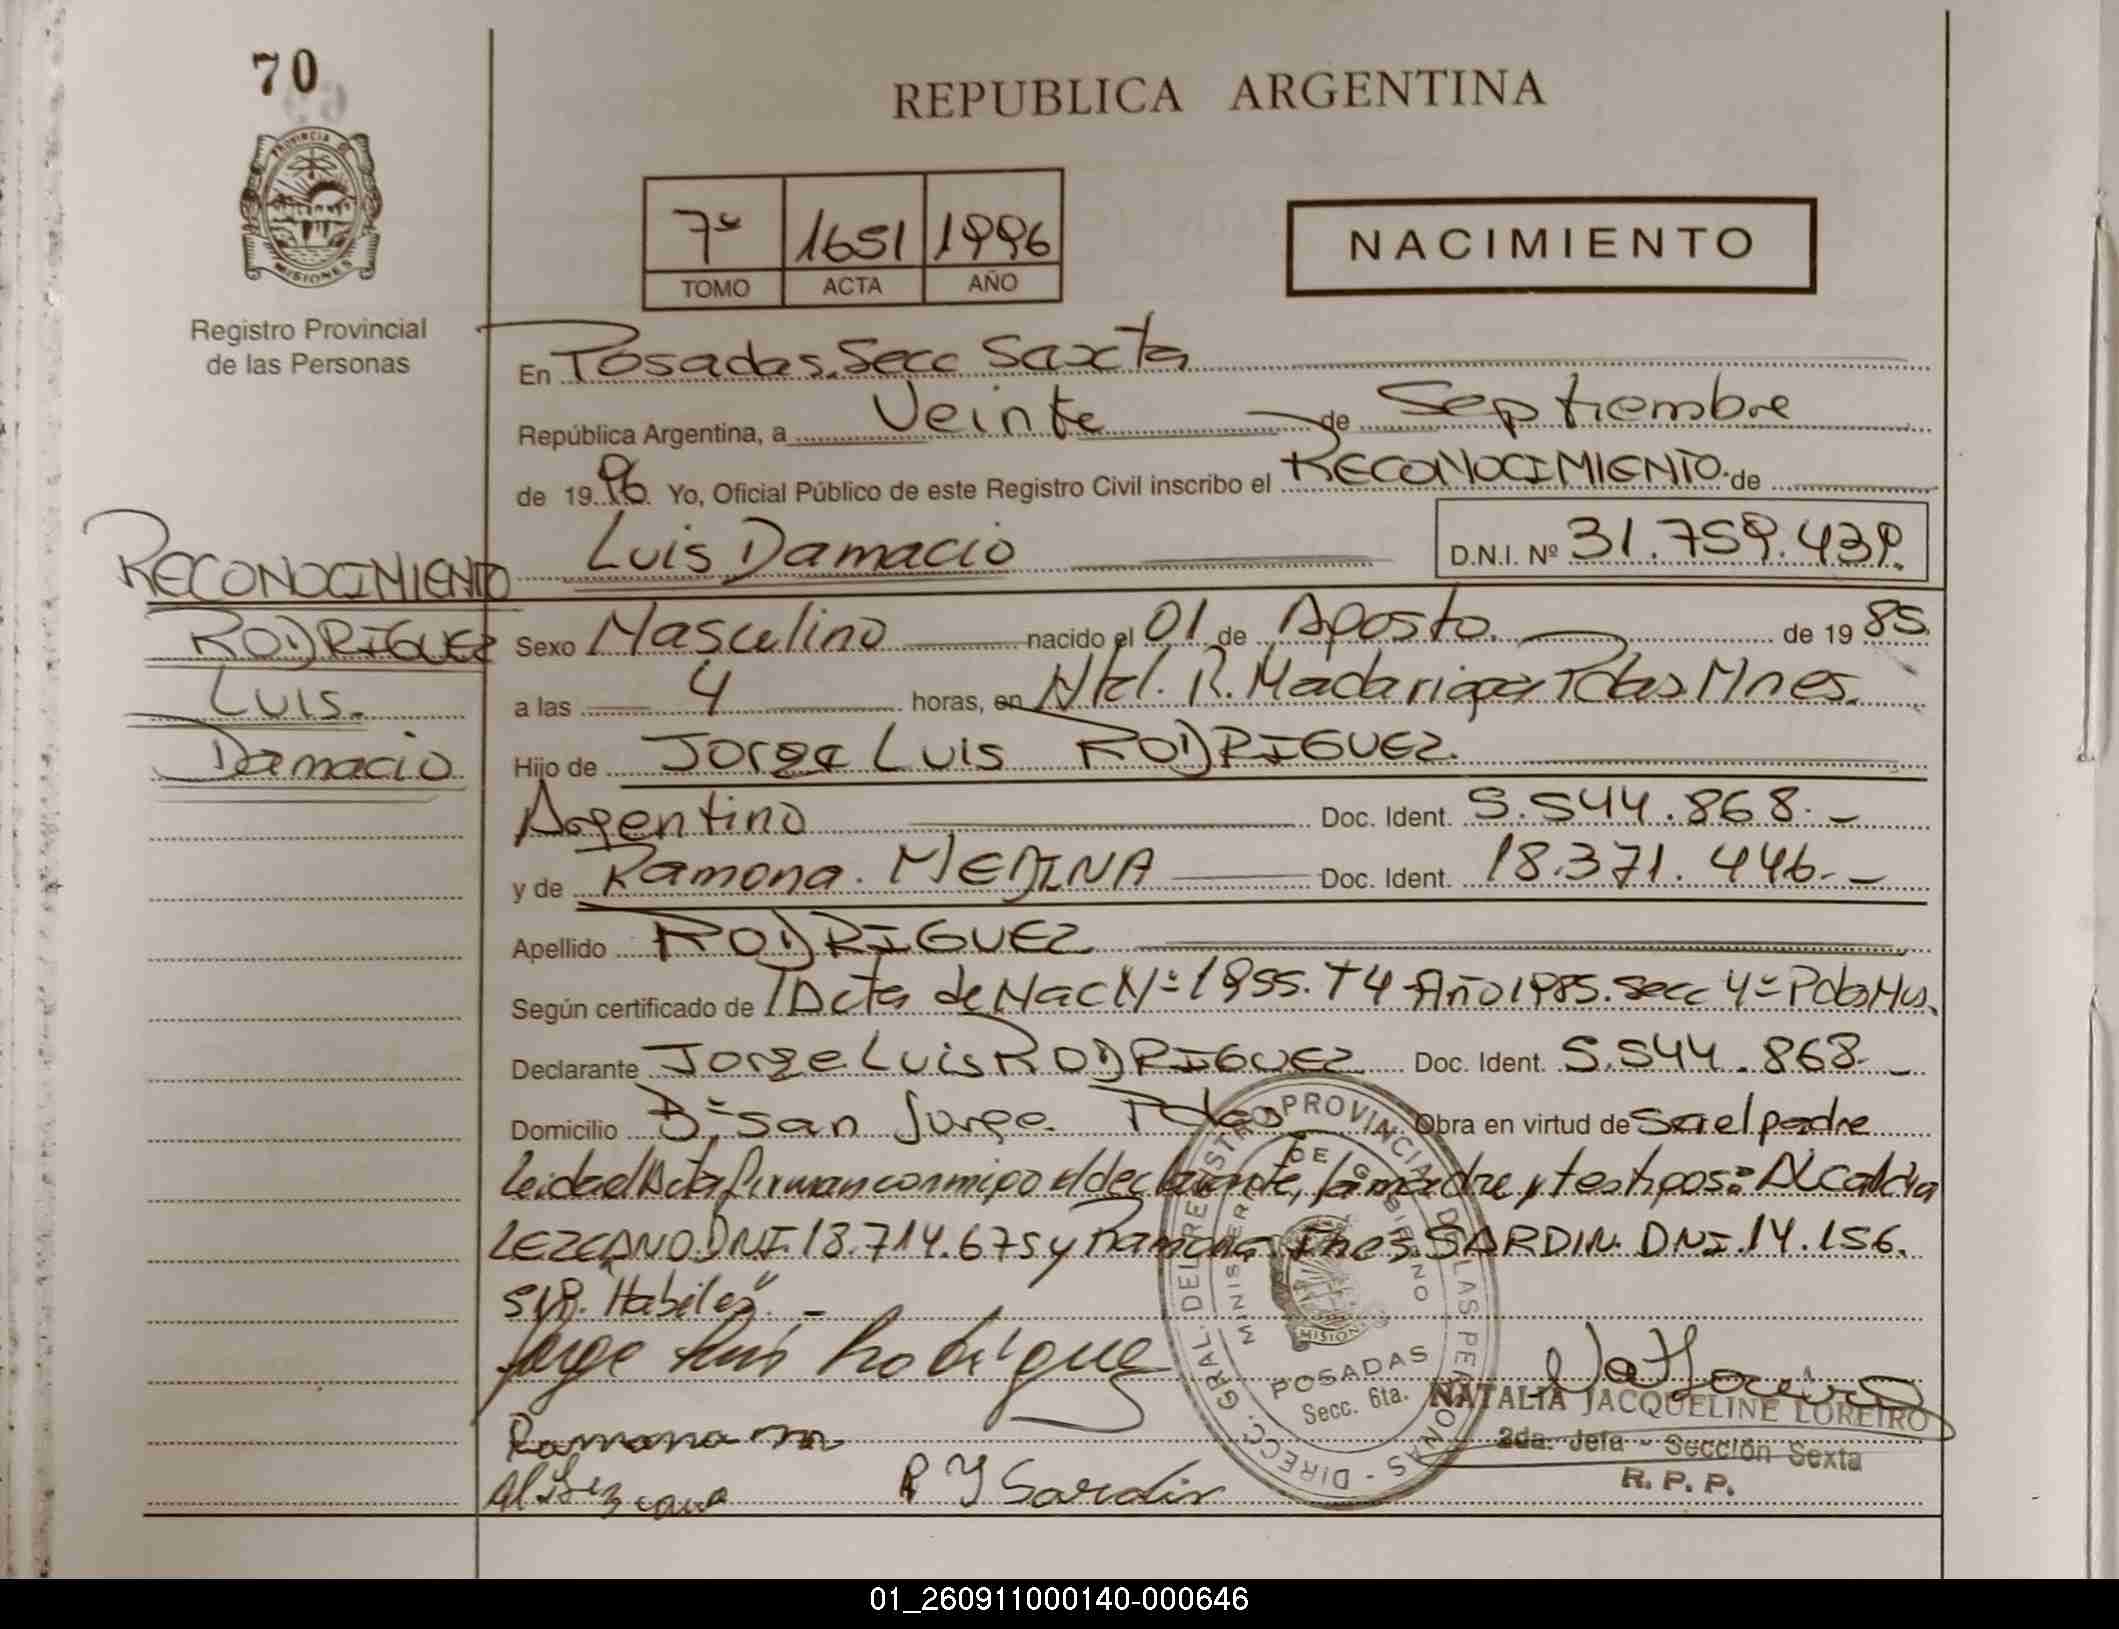 70
REPUBLICA ARGENTINA
PROVINCIA DE
MISIONES
Registro Provincial
de las Personas
7º 1651 1996
TOMO ACTA AÑO
NACIMIENTO
En Posadas. Secc Sexta
República Argentina, a Veinte de Septiembre
de 19 96. Yo, Oficial Público de este Registro Civil inscribo el RECONOCIMIENTO. de
Luis Damacio D.N.I. Nº 31.759.439.
RECONOCIMIENTO
RODRIGUEZ
Luis.
Damacio
Sexo Masculino nacido el 01 de Agosto. de 19 85.
a las 4 horas, en Htal. R. Madariaga Pdas. Mnes.
Hijo de Jorge Luis RODRIGUEZ.
Argentino Doc. Ident. 5.544.868.-
y de Ramona. MEDINA Doc. Ident. 18.371.446.-
Apellido RODRIGUEZ
Según certificado de Acta de Nac Nº 1955. T 4 Año 1985. Secc 4º Pdas Mns.
Declarante Jorge Luis RODRIGUEZ Doc. Ident. 5.544.868-
Domicilio Bº San Jorge. Pdas Obra en virtud de Ser el padre
Leida el Acta firman conmigo el declarante, la madre y testigos: Alcadia
LEZCANO. DNI. 18.714.675 y Ramona Ines SARDIN. DNI. 14.156.
519. Habiles". -
Jorge Luis Rodriguez
Ramona m
R Y Sardin
DIRECC. GRAL. DEL REGISTRO PROVINCIAL DE LAS PERSONAS
MINISTERIO DE GOBIERNO
MISIONES
POSADAS
Secc. 6ta.
NATALIA JACQUELINE LOREIRO
2da. Jefa - Sección Sexta
R. P. P.
01_260911000140-000646